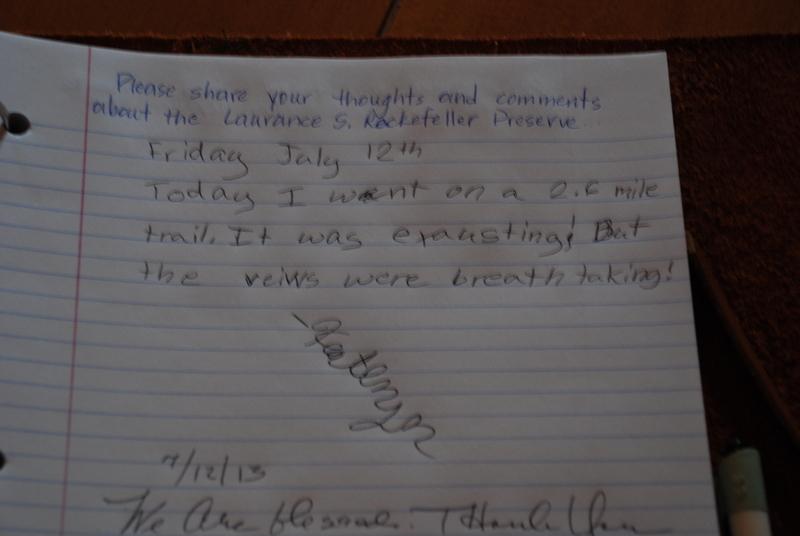 Please share your thoughts and comments
about the Laurance S. Rockefeller Preserve...
Friday July 12th
Today I went on a 2.6 mile
trail. It was exausting! But
the veiws were breath taking!
7/12/13
We Are Blessed. Thank You